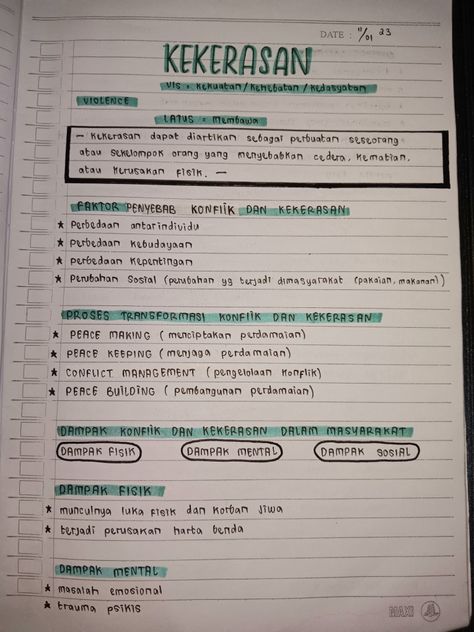 DATE : 11/01 23
KEKERASAN
VIS = Kekuatan / Kehebatan / Kedasyatan
VIOLENCE
LATUS = Membawa
- Kekerasan dapat diartikan sebagai perbuatan seseorang
atau sekelompok orang yang menyebabkan cedera, Kematian,
atau Kerusakan Fisik. -
FAKTOR PENYEBAB KONFLIK DAN KEKERASAN
★ Perbedaan antarindividu
★ Perbedaan Kebudayaan
★ Perbedaan Kepentingan
★ Perubahan Sosial (perubahan yg terjadi dimasyarakat (pakaian, makanan))
PROSES TRANSFORMASI KONFLIK DAN KEKERASAN
★ PEACE MAKING (menciptakan perdamaian)
★ PEACE KEEPING (menjaga perdamaian)
★ CONFLICT MANAGEMENT (pengelolaan Konflik)
★ PEACE BUILDING (pembangunan perdamaian)
DAMPAK KONFLIK DAN KEKERASAN DALAM MASYARAKAT
DAMPAK FISIK DAMPAK MENTAL DAMPAK SOSIAL
DAMPAK FISIK
★ munculnya luka Fisik dan Korban Jiwa
★ terjadi perusakan harta benda
DAMPAK MENTAL
★ masalah emosional
★ trauma psikis
MAXI